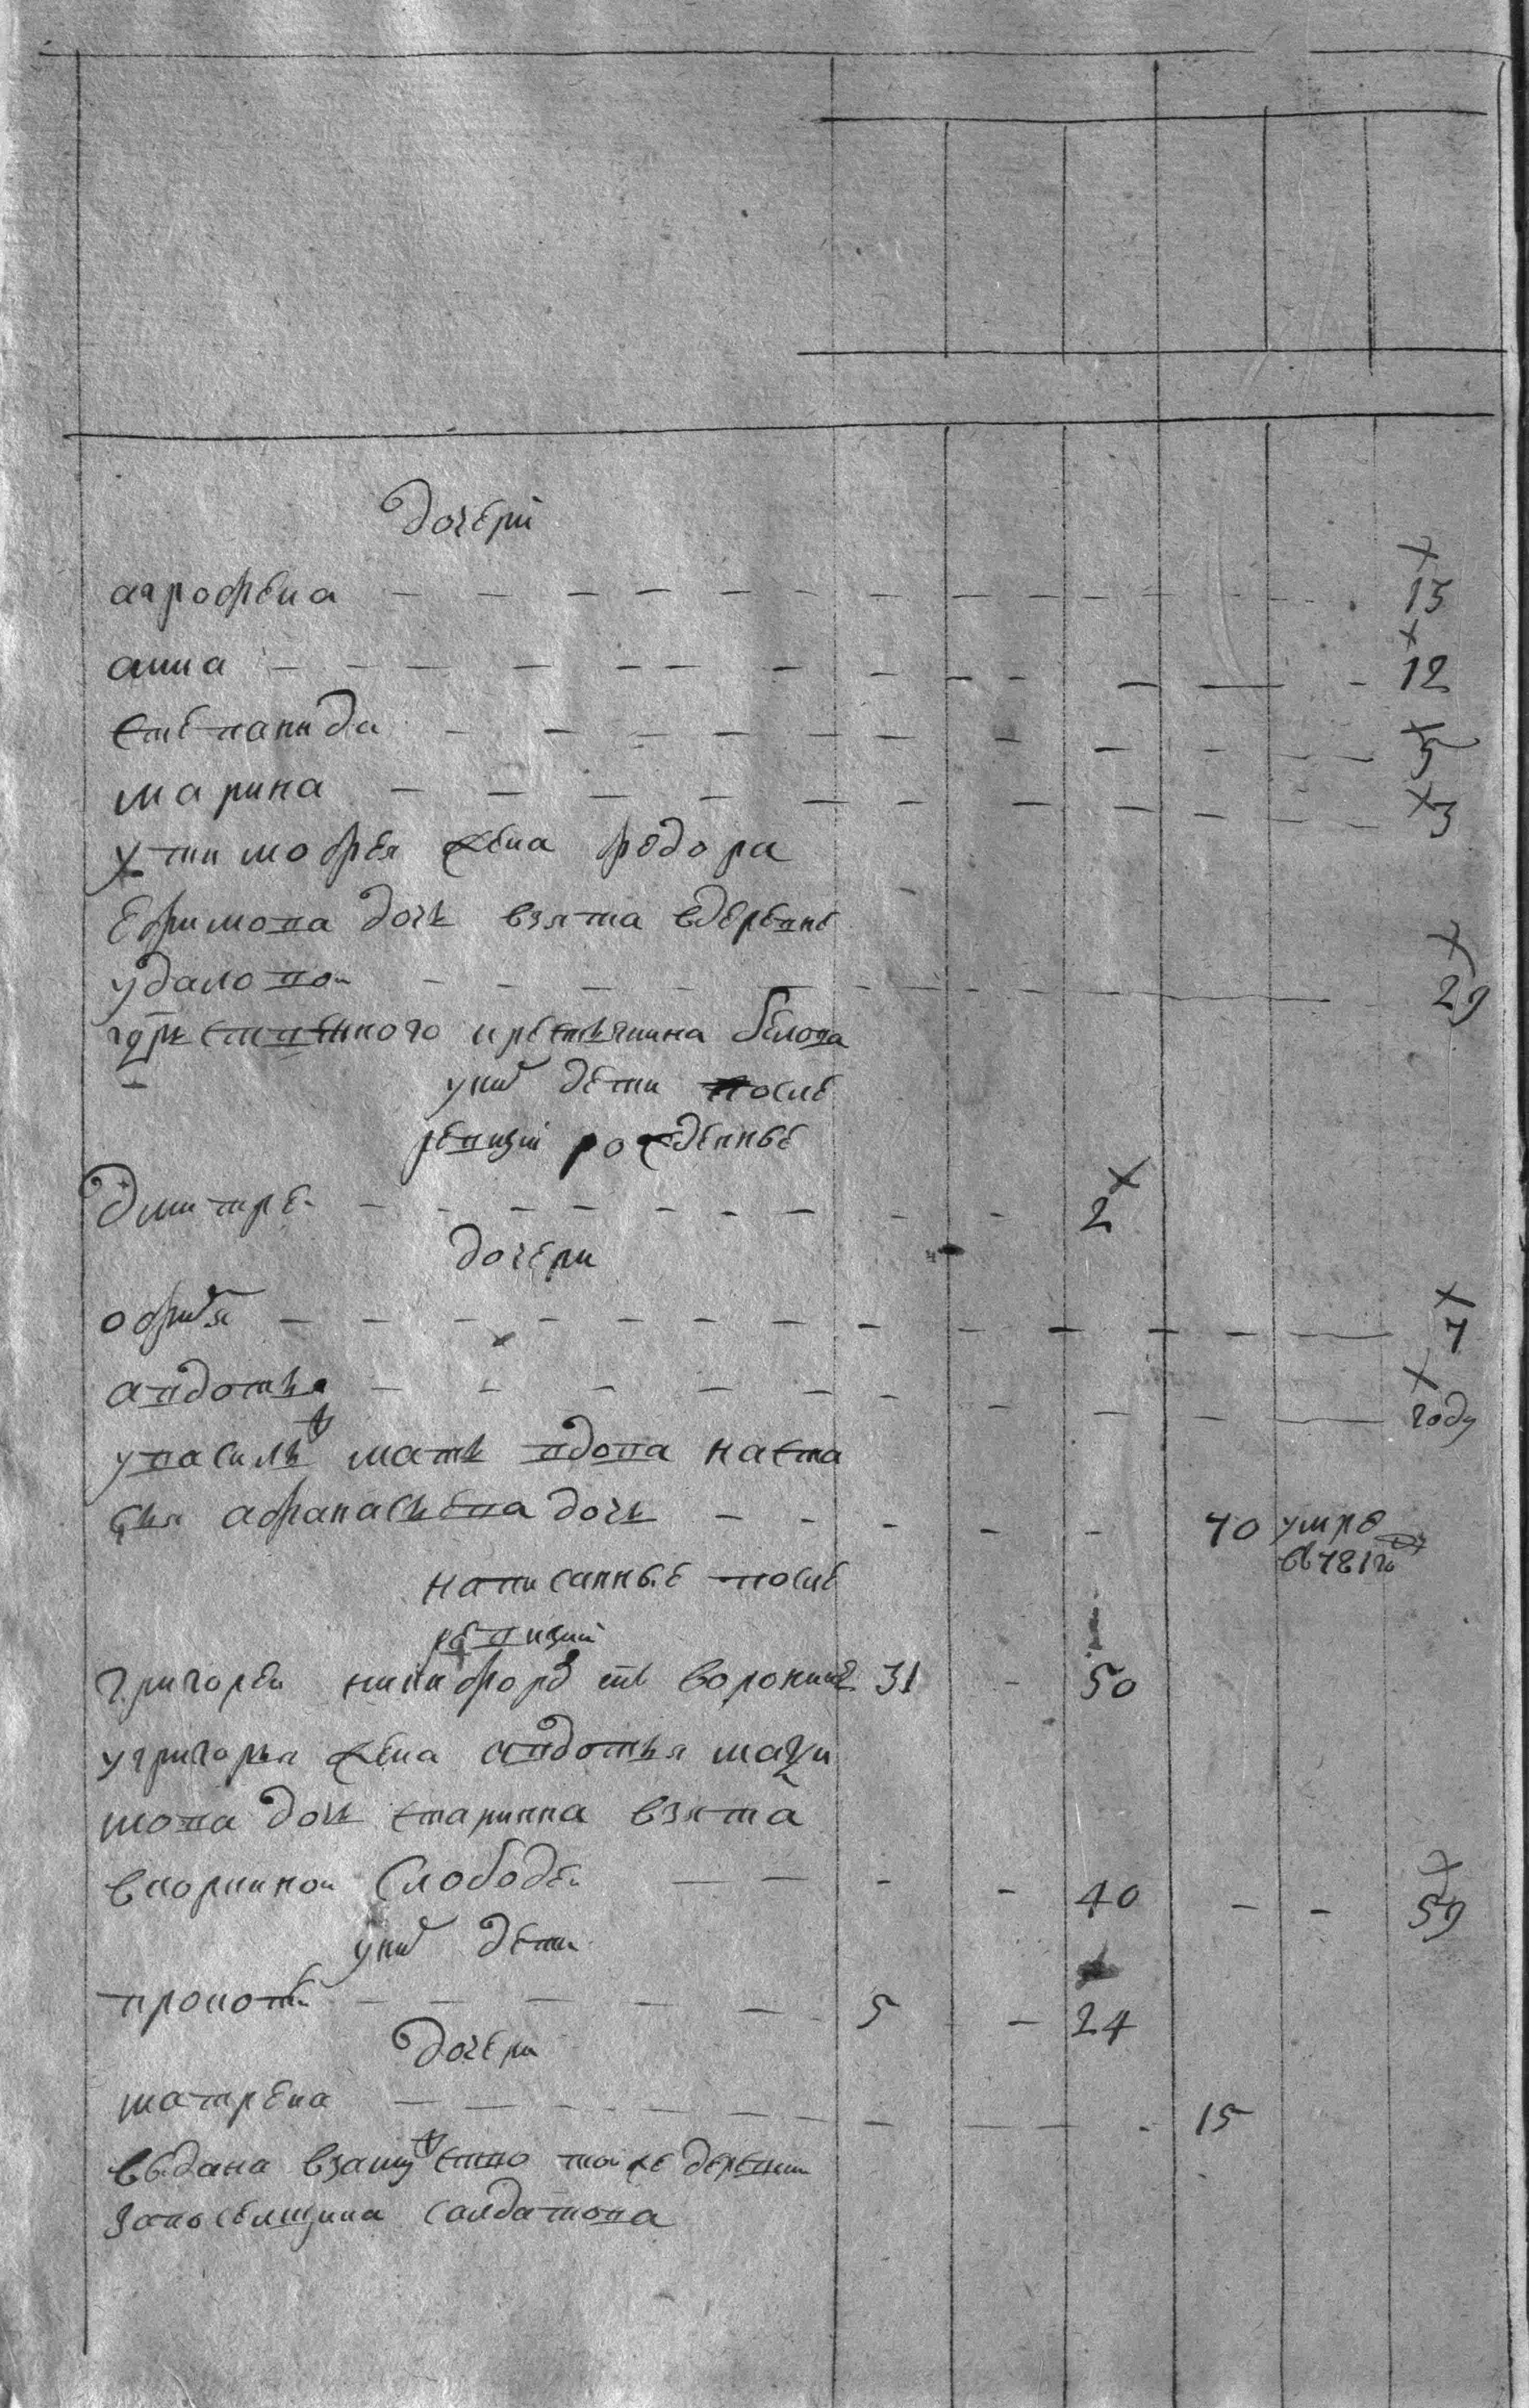 дочери
агрофена 15
анна 12
степанида 5
марина 3
у тимофея жена федора
ефимова дочь взята вдеревне
удаловои 29
крестьянина белова
уних дети после
ревизии рожденные
дмитреи 2
дочери
офимья 7
авдотья году
увасилья мать вдова наста
сья афанасьева дочь 70 умре
в 781 го
написанные после
ревизии
григореи никифоров сн воронин 31 50
угригорья жена авдотья макси
мова дочь старинна взята
в слободеи 40 59
уних дети
прокофеи 5 24
дочери
матрена 15
выдана взамужство тойже деревни
солдатова